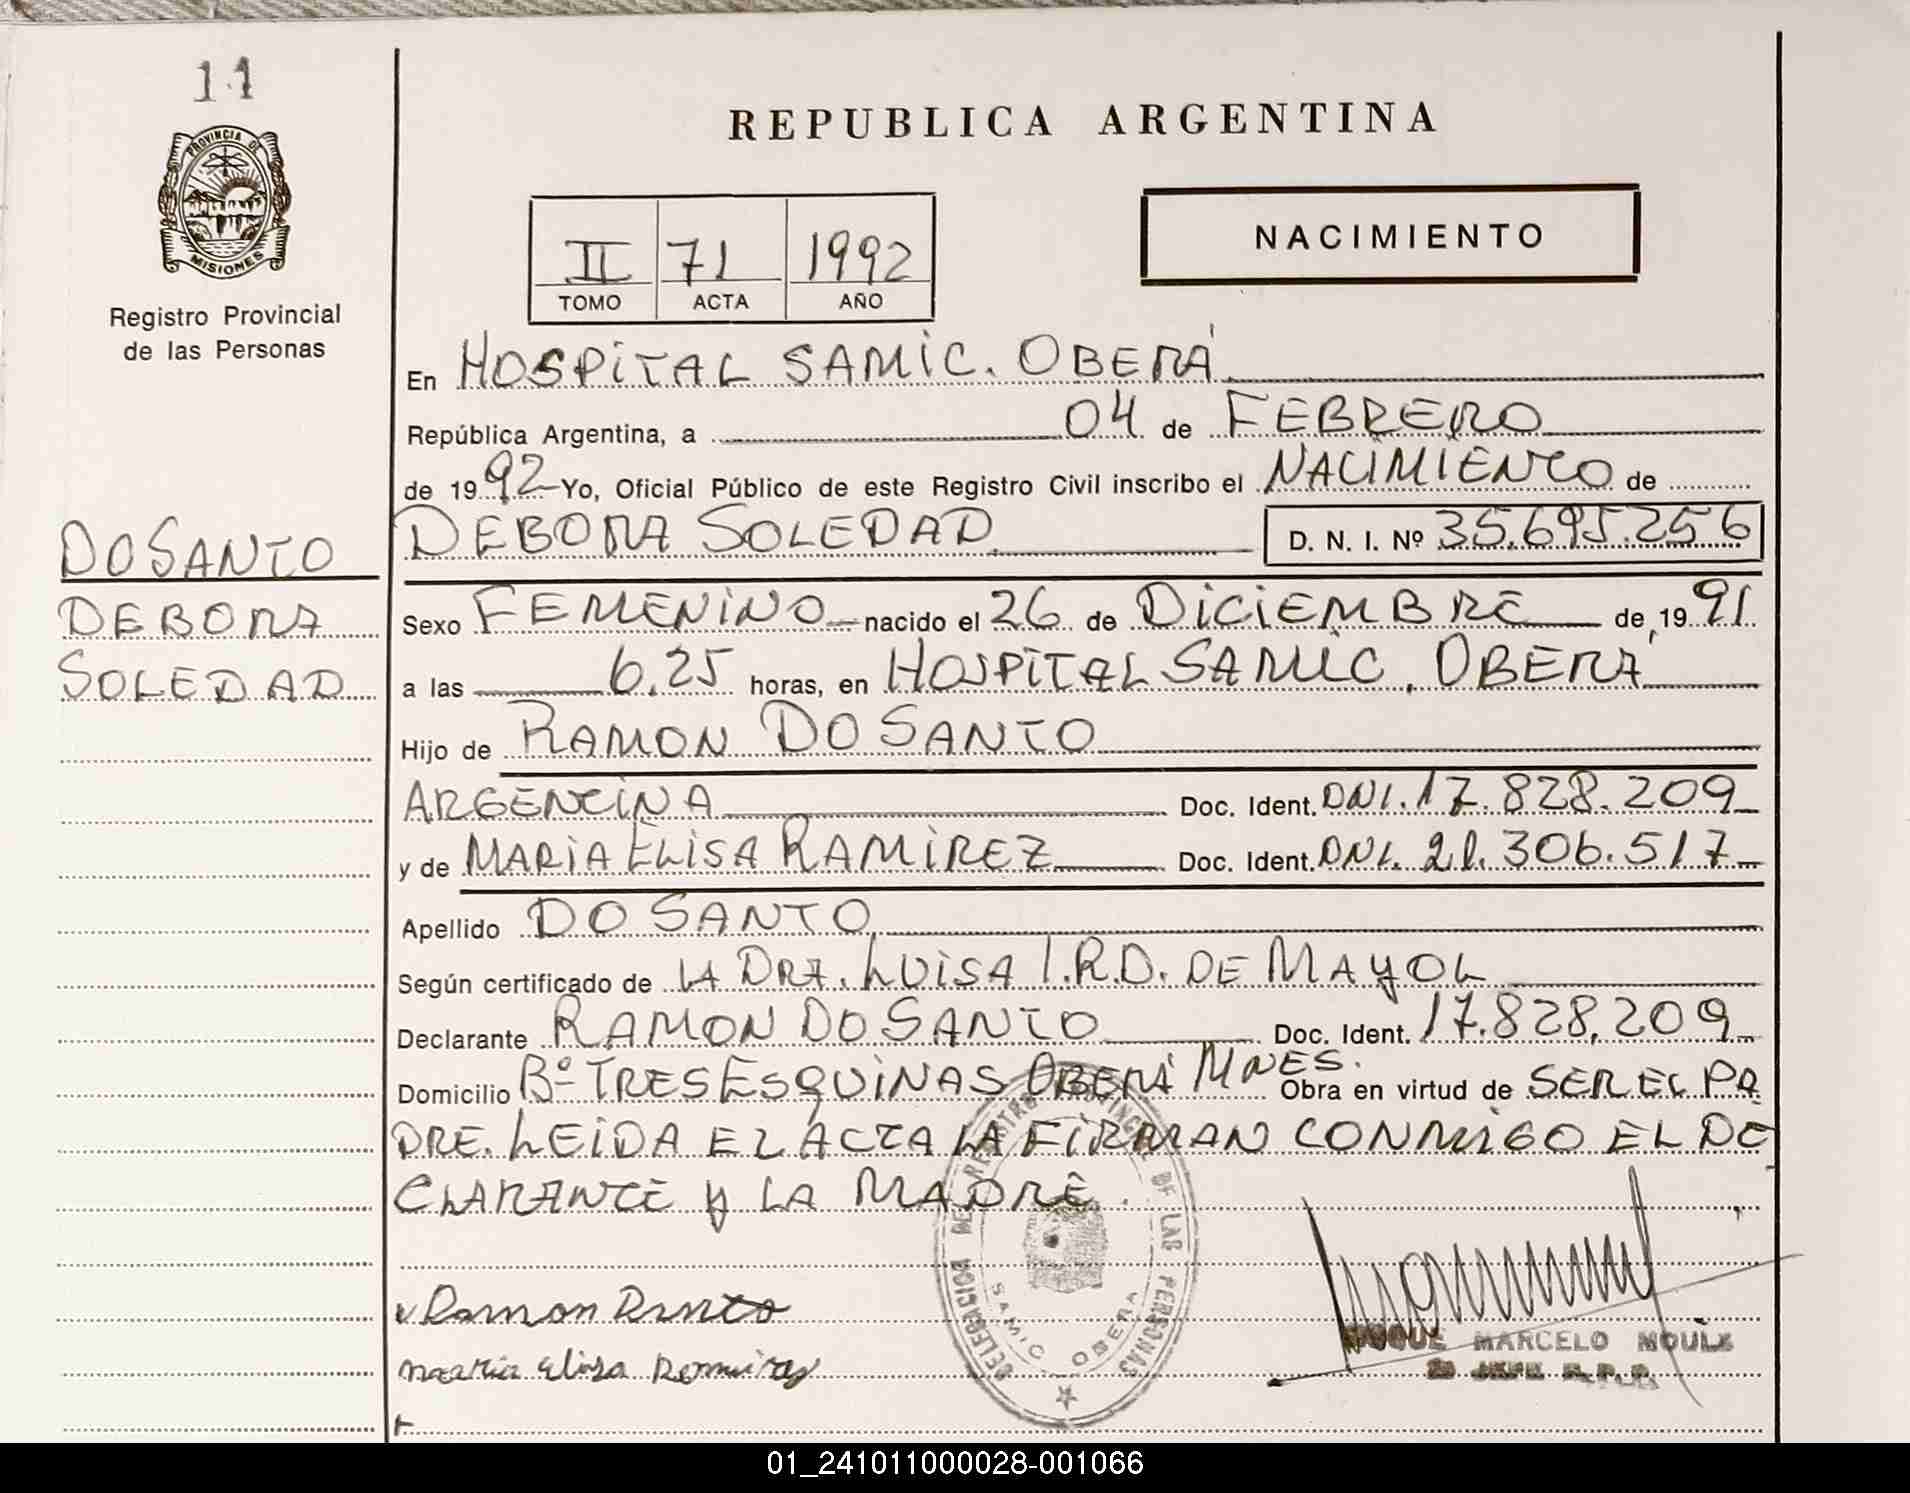 11
PROVINCIA DE
MISIONES
Registro Provincial
de las Personas
DO SANTO
DEBORA
SOLEDAD
REPUBLICA ARGENTINA
II 71 1992
TOMO ACTA AÑO
NACIMIENTO
En HOSPITAL SAMIC. OBERÁ
República Argentina, a 04 de FEBRERO
de 1992 Yo, Oficial Público de este Registro Civil inscribo el NACIMIENTO de
DEBORA SOLEDAD D. N. I. Nº 35.695.256
Sexo FEMENINO nacido el 26 de DICIEMBRE de 1991
a las 6.25 horas, en HOSPITAL SAMIC. OBERÁ
Hijo de RAMON DO SANTO
ARGENTINA Doc. Ident. DNI. 17.828.209
y de MARIA ELISA RAMIREZ Doc. Ident. DNI. 21.306.517
Apellido DO SANTO
Según certificado de LA DRA. LUISA I.R.D. DE MAYOL
Declarante RAMON DO SANTO Doc. Ident. 17.828.209
Domicilio Bº TRES ESQUINAS OBERÁ MNES. Obra en virtud de SER EL PA
DRE. LEIDA EL ACTA LA FIRMAN CONMIGO EL DE
CLARANTE y LA MADRE.
DELEGACION DEL REGISTRO PROVINCIAL DE LAS PERSONAS
SAMIC. OBERA
Ramon
maria Elisa Ramirez
MARCELO
JEFE R.P.P.
01_241011000028-001066